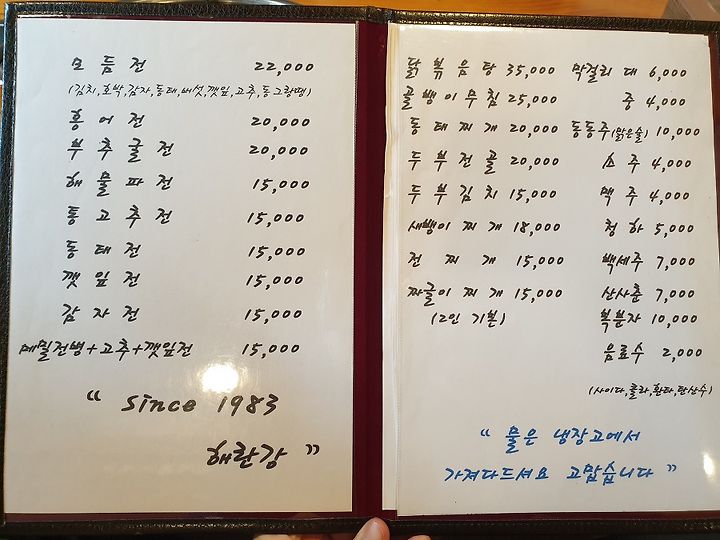 모듬전 22,000
(김치,호박,감자,동태,버섯,깻잎,고추,동그랑땡)
홍어전 20,000
부추굴전 20,000
해물파전 15,000
통고추전 15,000
동태전 15,000
깻잎전 15,000
감자전 15,000
메밀전병+고추+깻잎전 15,000
“ since 1983
해란강 ”
닭볶음탕 35,000
골뱅이무침 25,000
동태찌개 20,000
두부전골 20,000
두부김치 15,000
새뱅이찌개 18,000
전찌개 15,000
짜글이찌개 15,000
(2인 기본)
막걸리 대 6,000
중 4,000
동동주(맑은술) 10,000
소주 4,000
맥주 4,000
청하 5,000
백세주 7,000
산사춘 7,000
복분자 10,000
음료수 2,000
(사이다,콜라,환타,탄산수)
“ 물은 냉장고에서
가져다드셔요 고맙습니다 ”